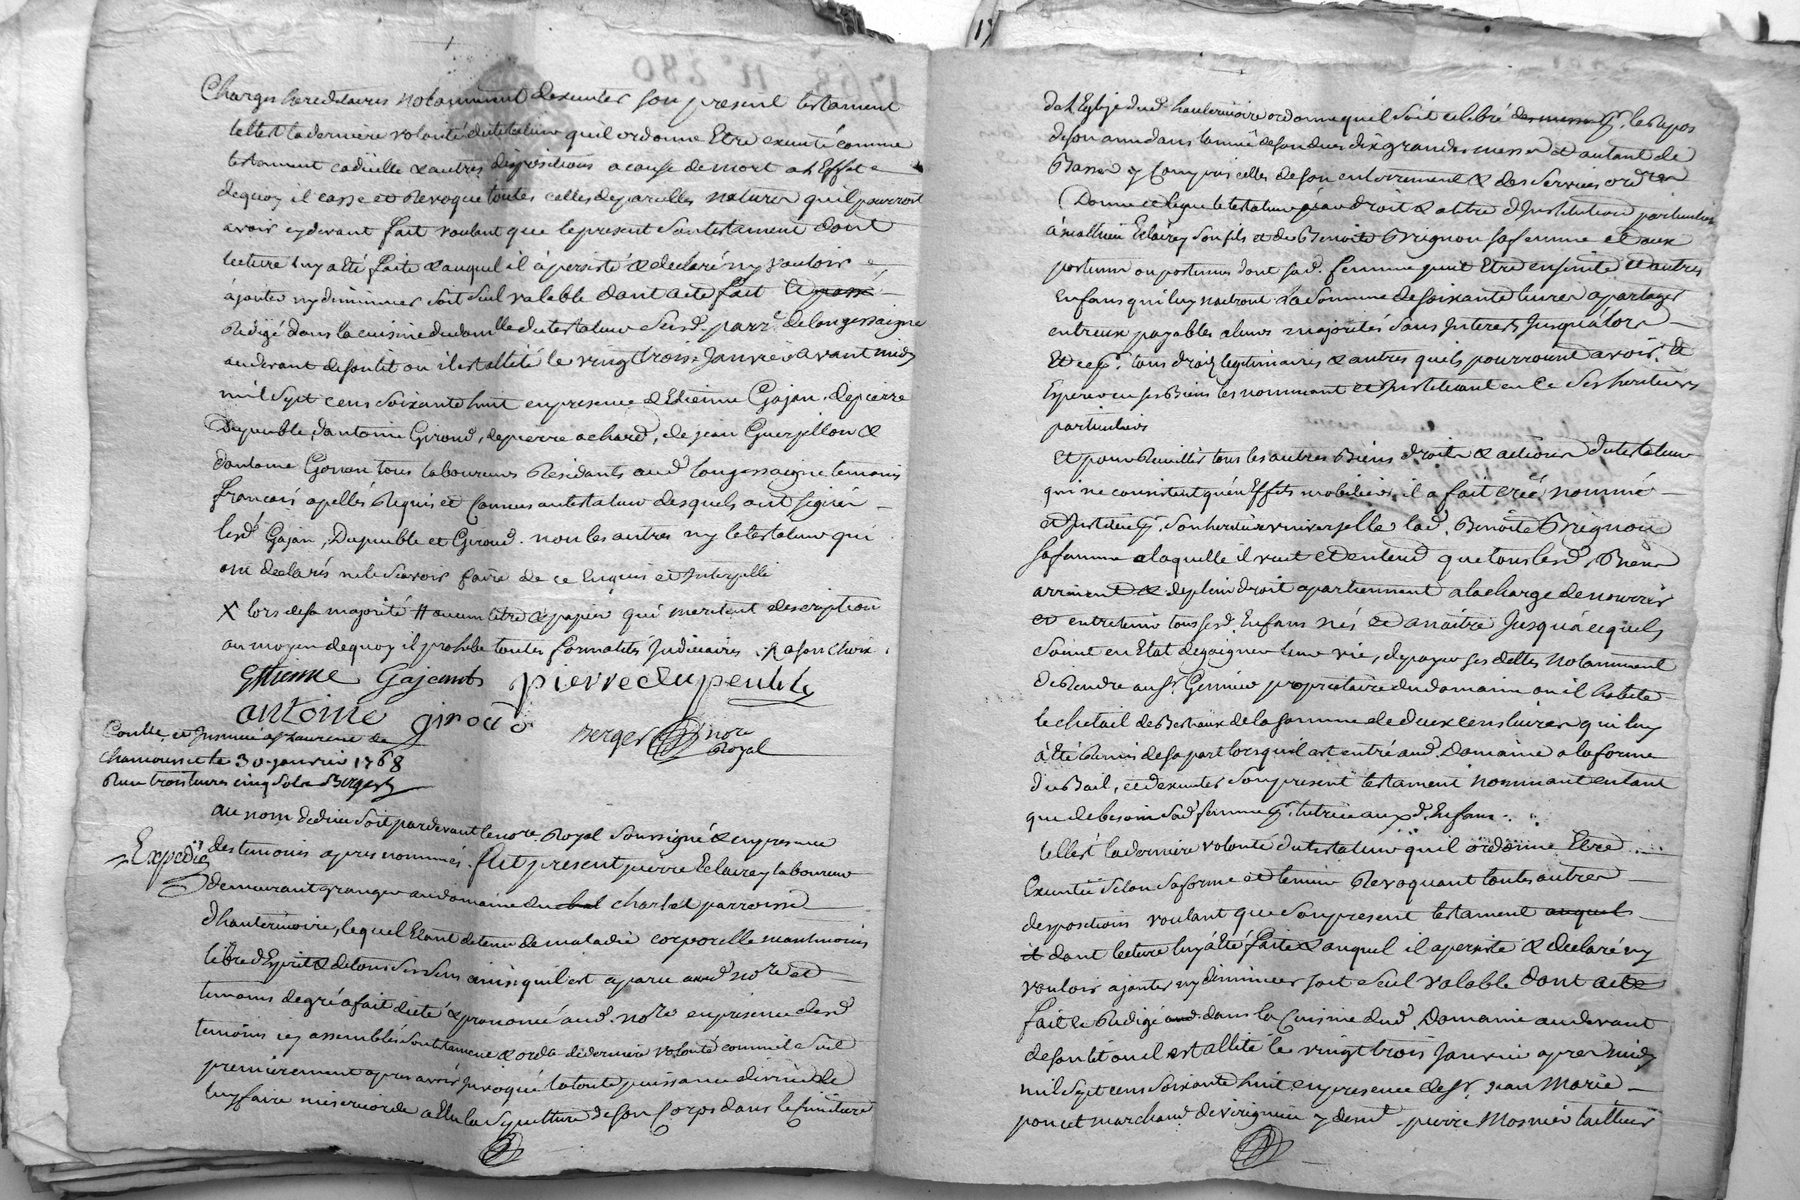 1768 n° 280
Charges hereditaires notamment d'executer son present testament
telle est la derniere volonté du testateur qu'il ordonne Etre executé comme
testament codicille & autres dispositions a cause de mort a l'Effet
de quoy il casse et Revoque toutes celles de pareilles natures qu'il pourroit
avoir cy devant fait voulant que le present son testament dont
lecture luy a été faite & auquel il à persisté & declaré ny vouloir
ajouter ny diminuer soit seul valable dont acte fait et passé
Redigé dans la cuisine du domlle du testateur susd. parr.e de longessaigne
au devant de son lit ou il est allité le vingt trois Janvier avant midy
mil sept cens soixante huit en presence d'Etienne Gajan, de pierre
Dupeuble, d'antoine Giroud, de pierre achard, de jean Guerpillon &
d'antoine Gonon tous laboureurs Residants aud. longessaigne temoins
francois apellés Requis et Connus au testateur desquels ont signés
lesd. Gajan, Dupeuble et Giroud. non les autres ny le testateur qui
ont declarés ne le sçavoir faire de ce Enquis et Interpellé
X lors de sa majorité # aucun titre & papier qui meritent description
au moyen de quoy il prohibe toutes formalités Judiciaires . a son choix .
Ettienne Gajan pierre dupeuble
antoine giroud Berger nore Royal
Contlle. et Insinué a St Laurent de
chamousset le 30 janvier 1768
Reçu trois livres cinq sols Berger
au nom de dieu soit pardevant le nore. Royal soussigné & en presence
Expedié
des temoins apres nommés. fut present pierre Eclairey laboureur
demeurant granger au domaine du chal charlet parroisse
d'hauterivoire, lequel Etant detenu de maladie corporelle neantmoins
libre d'Esprit & de tous ses sens ainsi qu'il est aparu aud. nore et
temoins de gré a fait dicté & prononcé aud. nore en presence desd.
temoins icy assemblés son testament & ordce de derniere volonté comme il suit
premierement apres avoir Invoqué la toute puissance divine de
luy faire misericorde a Elu la sepulture de son Corps dans le cimetiere
de l'Eglise dud. hauterivoire ordonne quil soit celebré des messes pr. le Repos
de son ame dans l'année de son deces dix grandes messes et autant de
Basses y Compris celles de son enterrement & des services ordres
Donne et legue le testateur par droit & attre d'Institution particuliere
à mathieu Eclairey son fils et de Benoite Brignon sa femme et aux
postume ou postumes dont sad. femme peut Etre enceinte et autres
Enfans qui luy naitront la somme de soixante livres a partager
entreux payables a leurs majorités sans Interets Jusqu'alors
Et ce pr. tous droits legitimaires & autres quils pourroient avoir &
Esperer en ses Biens les nommant et Instituant en ce ses heritiers
particuliers
Et pour Recueillir tous les autres Biens droits & actions du testateur
qui ne consistent qu'en Effets mobiliers, il a fait créé nommé
et Institué pr. son heritiere universelle lad. Benoite Brignon
sa femme a laquelle il veut et entend que tous lesd. Biens
arrivent & de plein droit apartiennent a la charge de nourrir
et entretenir tous sesd. Enfans nés et a naître Jusqu'a ce quils
soient en Etat de gagner leur vie, de payer ses dettes notamment
de Rendre au sr. Germieu proprietaire du domaine ou il habite
le chetail de Bestiaux de la somme de deux cens livres qui luy
à été Remis de sa part lorsquil est entré aud. Domaine a la forme
du Bail, et d'executer son present testament nommant entant
que de besoin sad. femme pr. tutrice auxd. Enfans.
telle est la derniere volonté du testateur quil ordonne Etre
Executée selon sa forme et teneur Revoquant toutes autres
despositions voulant que son present testament auquel
il dont lecture luy à été faite & auquel il a persisté & declaré ny
vouloir ajouter ny diminuer soit seul valable dont acte
fait & Redigé aud. dans la Cuisine dud. Domaine au devant
de son lit ou il est allité le vingt trois Janvier apres midy
mil sept cens soixante huit en presence de sr. jean Marie
poncet marchand de virigneu y demt. pierre Mosnier tailleur